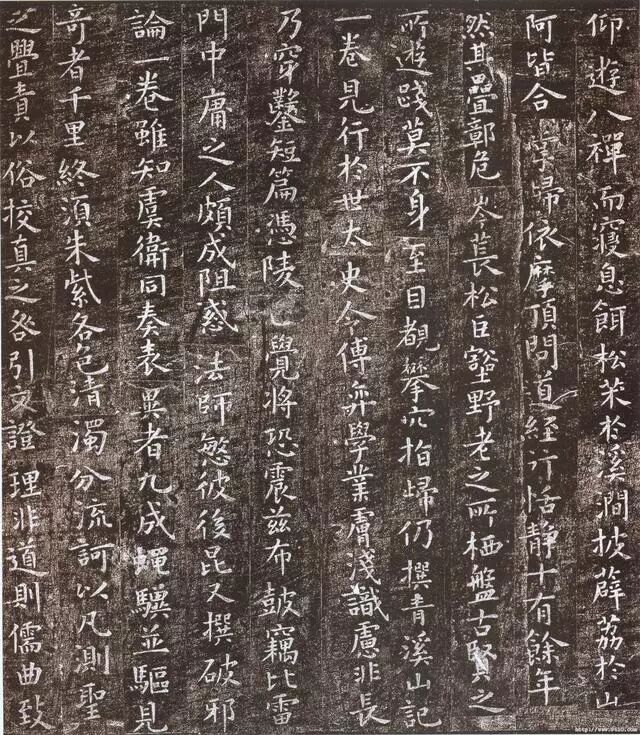 仰遊八禪而寢息餌松朮於溪澗披薜荔於山
阿皆合掌歸依摩頂問道經行恬靜十有餘年
然其疊鄣危岑萇松巨壑野老之所栖盤古賢之
所遊踐莫不身至目覩攀穴指歸仍撰青溪山記
一卷見行於世太史令傅弈學業膚淺識慮非長
乃穿鑿短篇憑陵覺將恐震茲布鼓竊比雷
門中庸之人頗成阻惑法師愍彼後昆又撰破邪
論一卷雖知虞衛同奏表異者九成蠅驥並驅見
奇者千里終須朱紫各色清濁分流訶以凡測聖
之舋責以俗校真之咎引文證理非道則儒曲致
http://www.9610.com